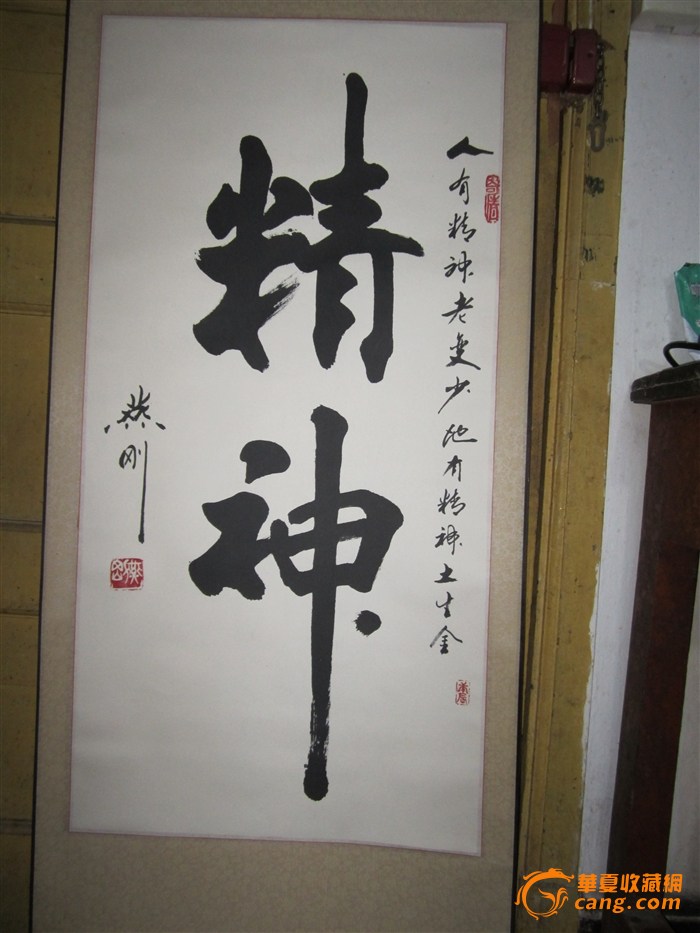 人有精神老变少地有精神土生金
精神
燕刚
華夏收藏網
cang.com